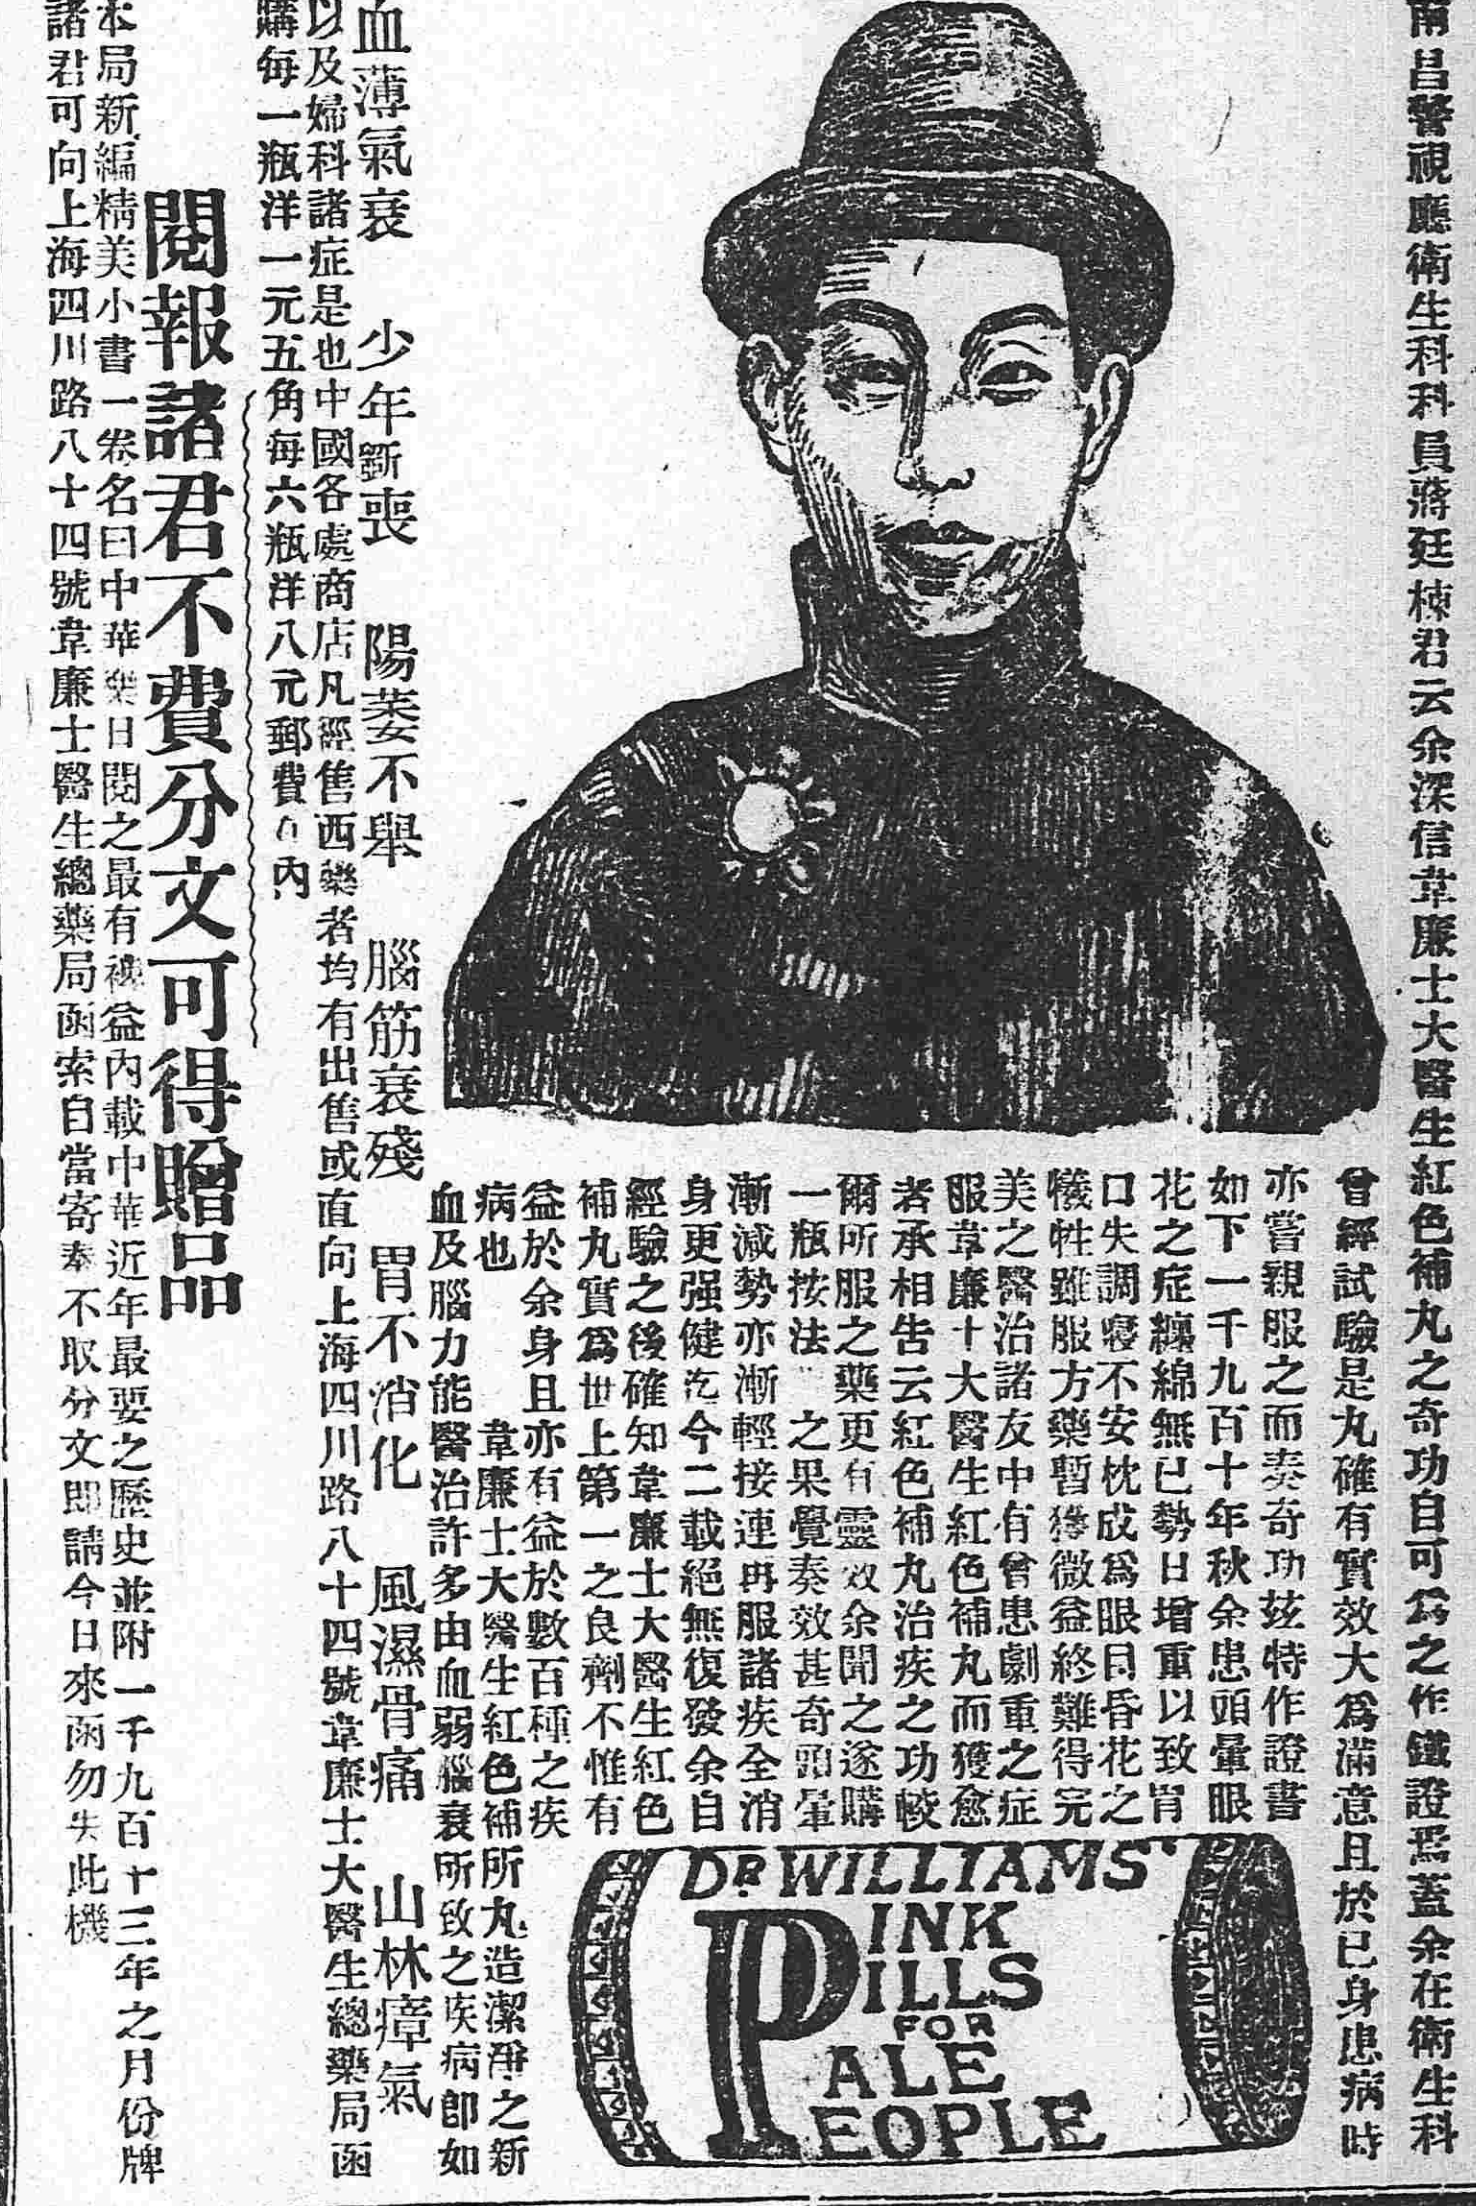 南昌警視廳衛生科科員蔣廷棟君云余深信韋廉士大醫生紅色補丸之奇功自可爲之作鐵證焉蓋余在衛生科
曾經試驗是丸確有實效大爲滿意且於已身患病時
亦嘗親服之而奏奇功茲特作證書
如下一千九百十年秋余患頭暈眼
花之症纏綿無已勢日增重以致胃
口失調寢不安枕成爲眼目昏花之
犧牲雖服方藥暫獲微益終難得完
美之醫治諸友中有曾患劇重之症
服韋廉士大醫生紅色補丸而獲愈
者承相告云紅色補丸治疾之功較
爾所服之藥更有靈效余聞之遂購
一瓶按法 之果覺奏效甚奇頭暈
漸減勢亦漸輕接連再服諸疾全消
身更强健迄今二載絕無復發余自
經驗之後確知韋廉士大醫生紅色
補丸實爲世上第一之良劑不惟有
益於余身且亦有益於數百種之疾
病也 韋廉士大醫生紅色補所丸造潔淨之新
血及腦力能醫治許多由血弱腦衰所致之疾病卽如
血薄氣衰 少年斵喪 陽萎不舉 腦筋衰殘 胃不消化 風濕骨痛 山林瘴氣
以及婦科諸症是也中國各處商店凡經售西藥者均有出售或直向上海四川路八十四號韋廉士大醫生總藥局函
購每一瓶洋一元五角每六瓶洋八元郵費在內
閱報諸君不費分文可得贈品
本局新編精美小書一卷名曰中華樂日閱之最有裨益內載中華近年最要之歷史並附一千九百十三年之月份牌
諸君可向上海四川路八十四號韋廉士醫生總藥局函索自當寄奉不取分文即請今日來函勿失此機
DR. WILLIAMS'
PINK
PILLS
FOR
PALE
PEOPLE